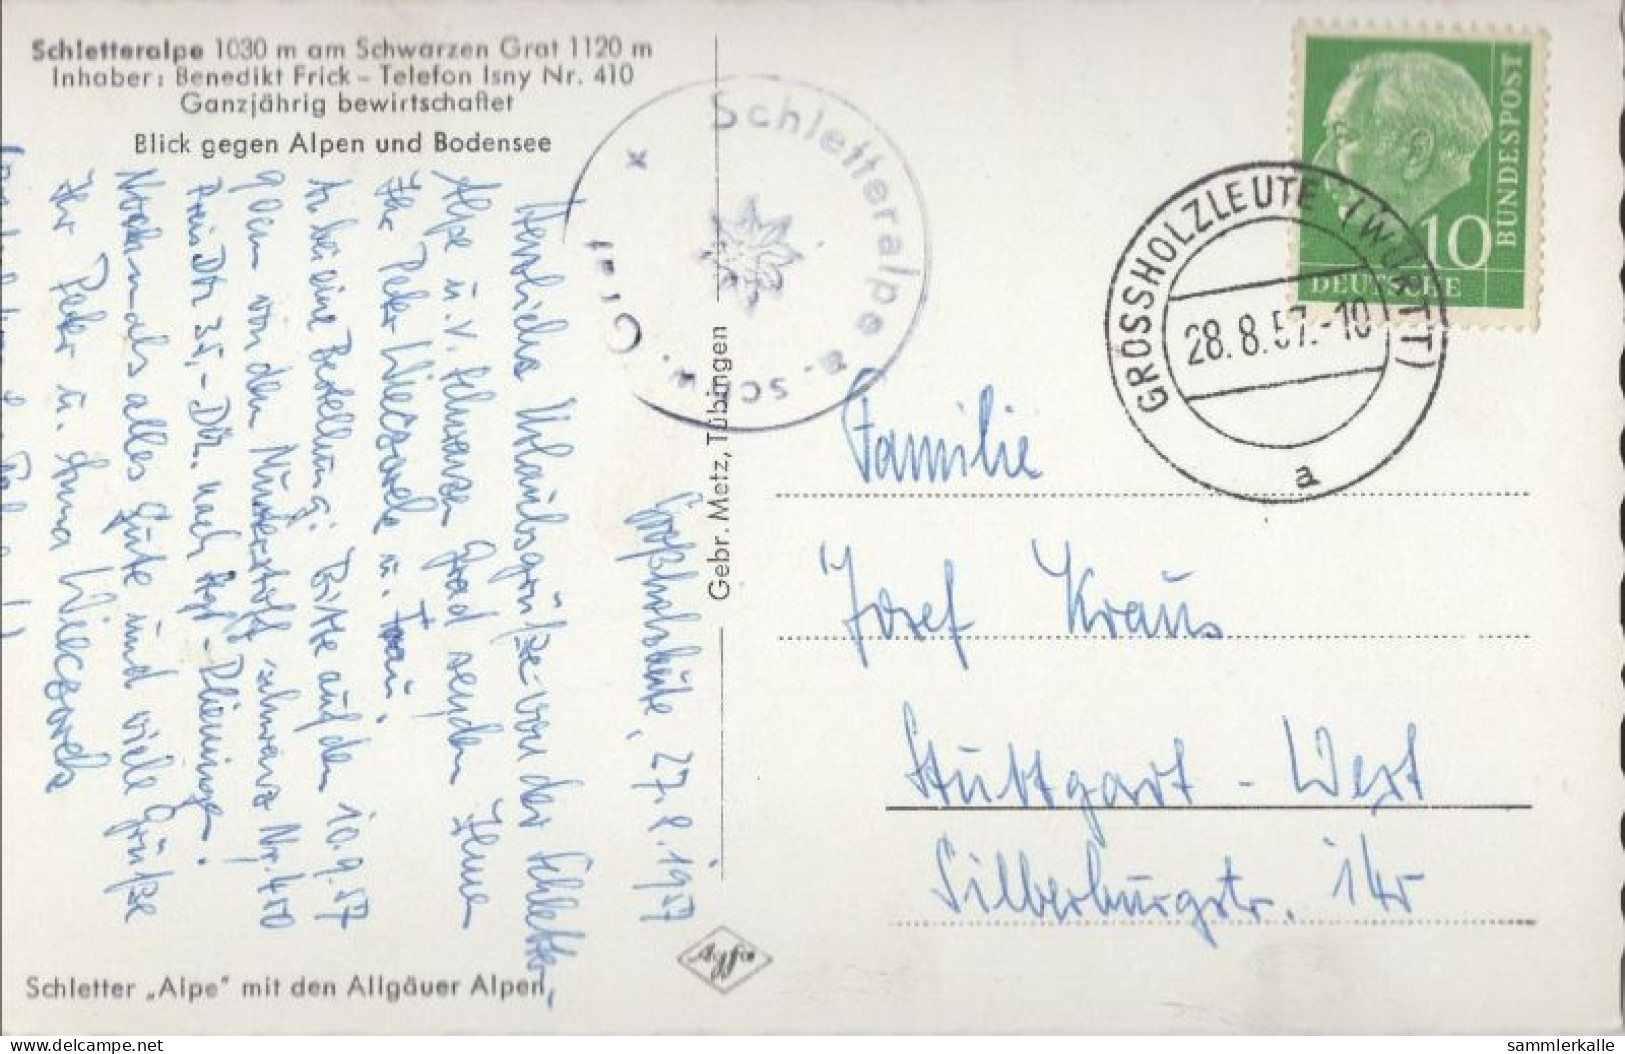 Schletteralpe 1030 m am Schwarzen Grat 1120 m
Inhaber: Benedikt Frick – Telefon Isny Nr. 410
Ganzjährig bewirtschaftet
Blick gegen Alpen und Bodensee
Großholzleute, 27.8.1957
Herzliche Urlaubsgrüße von der Schletter
Alpe u. v. schwarzen Grad senden Ihnen
Ihr Peter u.
Anbei eine Bestellung: Bitte auf den 10.9.57
von dem schwarz Nr. 400
Preis DM 35,- DM. nach
Nochmals alles Gute und viele Grüße
Ihr Peter u. Anna
Schletter „Alpe" mit den Allgäuer Alpen
Schletteralpe
Gebr. Metz, Tübingen
Agfa
DEUTSCHE
BUNDESPOST
10
GROSSHOLZLEUTE (WÜRTT)
28.8.57.-10
a
Familie
Josef Kraus
Stuttgart - West
Silberburgstr. 145
delcampe.net
sammlerkalle